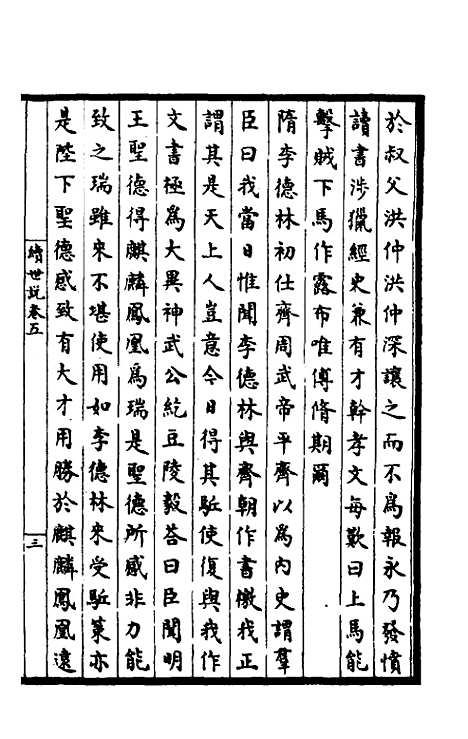 於叔父洪仲洪仲深讓之而不爲報永乃發憤
讀書涉獵經史兼有才幹孝文每歎曰上馬能
擊賊下馬作露布唯傅脩期爾
隋李德林初仕齊周武帝平齊以爲內史謂羣
臣曰我當日惟聞李德林與齊朝作書檄我正
謂其是天上人豈意今日得其駈使復與我作
文書極爲大異神武公紇豆陵毅荅曰臣聞明
王聖德得麒麟鳳凰爲瑞是聖德所感非力能
致之瑞雖來不堪使用如李德林來受駈䇿亦
是陛下聖德感致有大才用勝於麒麟鳳凰遠
續世説卷五
三